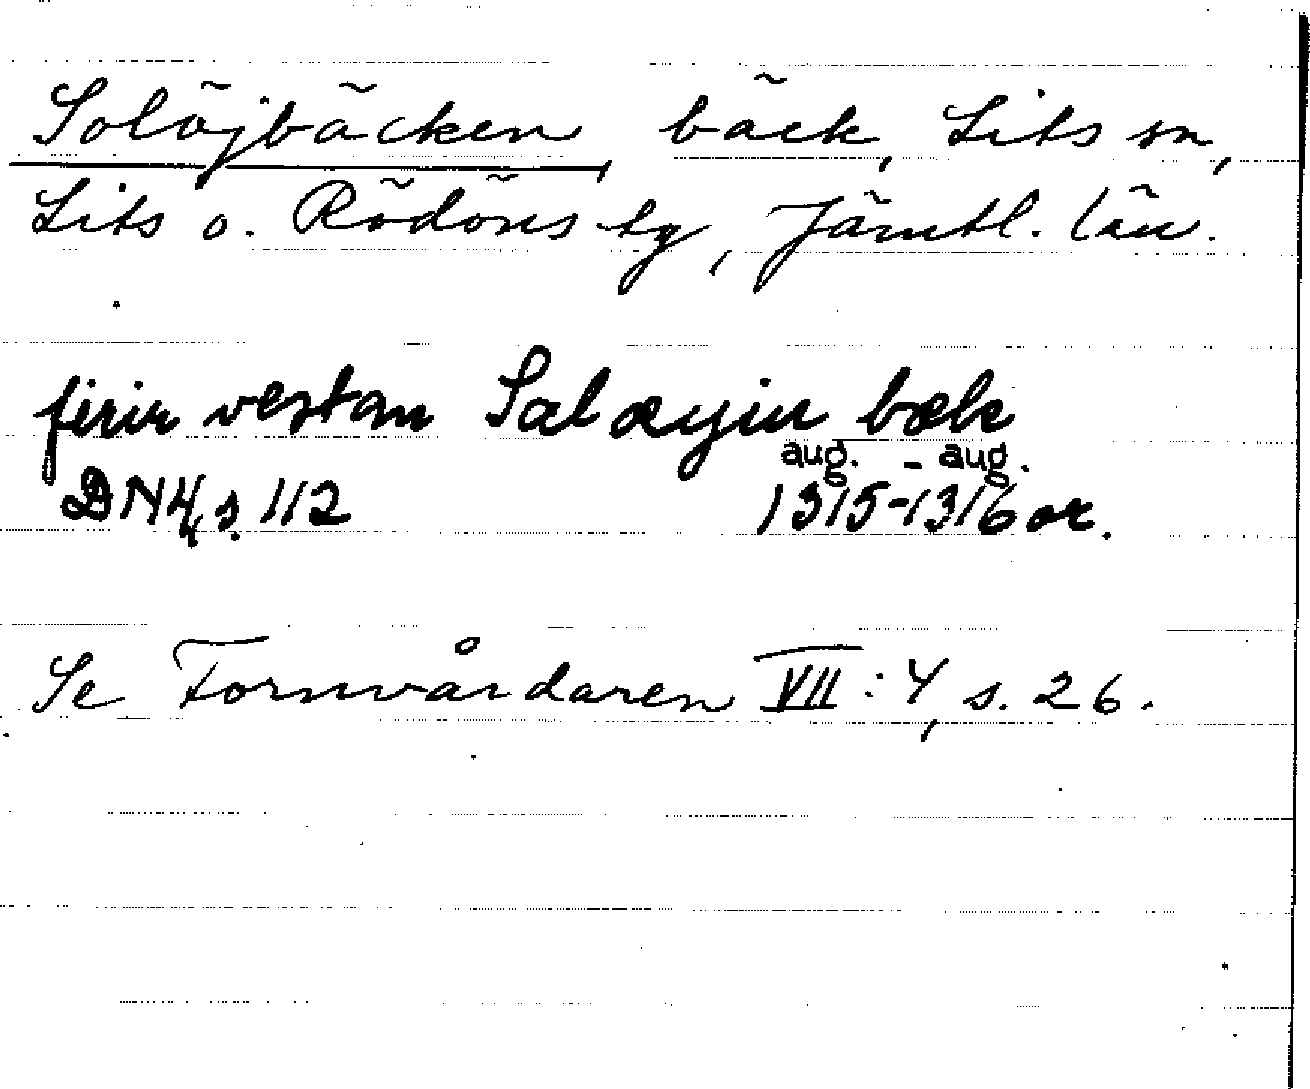 Solöjbäcken bäck, Lits sn,
Lits o. Rödöns tg, Jämtl. län.
firir vestan Salæyiu bæk
aug. - aug.
DN 4, s. 112 1315-1316 or.
Se Fornvårdaren VII:4, s. 26.